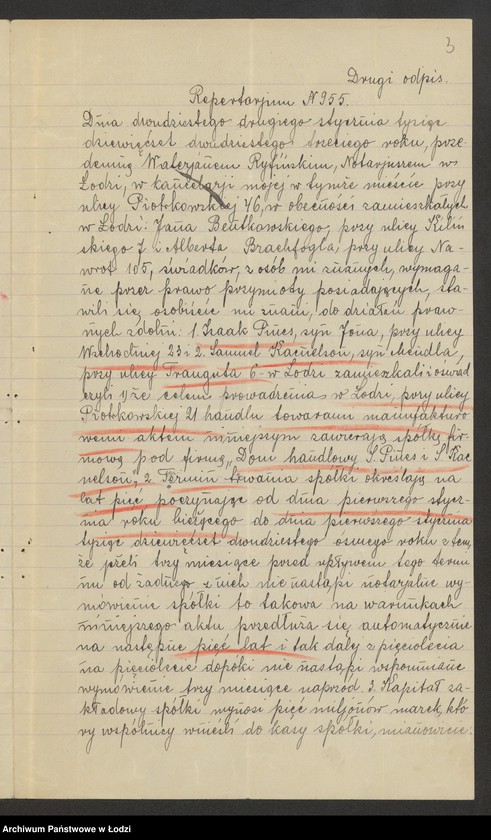 3
Drugi odpis.
Repertorjum N 955.
Dnia dwudziestego drugiego stycznia tysiąc
dziewięćset dwudziestego trzeciego roku, prze-
demną Walerjanem Ryfińskim, Notarjuszem w
Łodzi, w kancelarji mojej w tymże mieście przy
ulicy Piotrkowskiej 46, w obecności zamieszkałych
w Łodzi: Jana Bentkowskiego, przy ulicy Kiliń
skiego i Alberta Brachfogla, przy ulicy Na-
wrot 105, świadków, z osób mi znanych, wymaga-
ne przez prawo przymioty posiadających, sta-
wili się osobiście mi znani, do działań praw-
nych zdolni: 1 Izaak Pines, syn Jona, przy ulicy
Wschodniej 23 i 2. Samuel Kacnelson, syn Mendla,
przy ulicy Traugutta 6 - w Łodzi zamieszkali i oświad
czyli 1/ że celem prowadzenia w Łodzi, przy ulicy
Piotrkowskiej 21 handlu towarami manufakturo
wemi aktem niniejszym zawierają spółkę fir-
mową pod firmą „Dom handlowy I. Pines i S. Kac
nelson”, 2 Termin trwania spółki określają na
lat pięć poczynając od dnia pierwszego stycz-
nia roku bieżącego do dnia pierwszego stycznia
tysiąc dziewięćset dwudziestego ósmego roku z tem,
że jeżeli trzy miesiące przed upływem tego termi
nu od żadnego z nich nie nastąpi notarjalne wy-
mówienie spółki to takowa na warunkach
niniejszego aktu przedłuża się automatycznie
na następne pięć lat i tak dalej z pięciolecia
na pięciolecie dopóki nie nastąpi wspomniane
wymówienie trzy miesiące naprzód. 3. Kapitał za-
kładowy spółki wynosi pięć miljonów marek, któ
ry wspólnicy wnieśli do kasy spółki, mianowicie:
Archiwum Państwowe w Łodzi